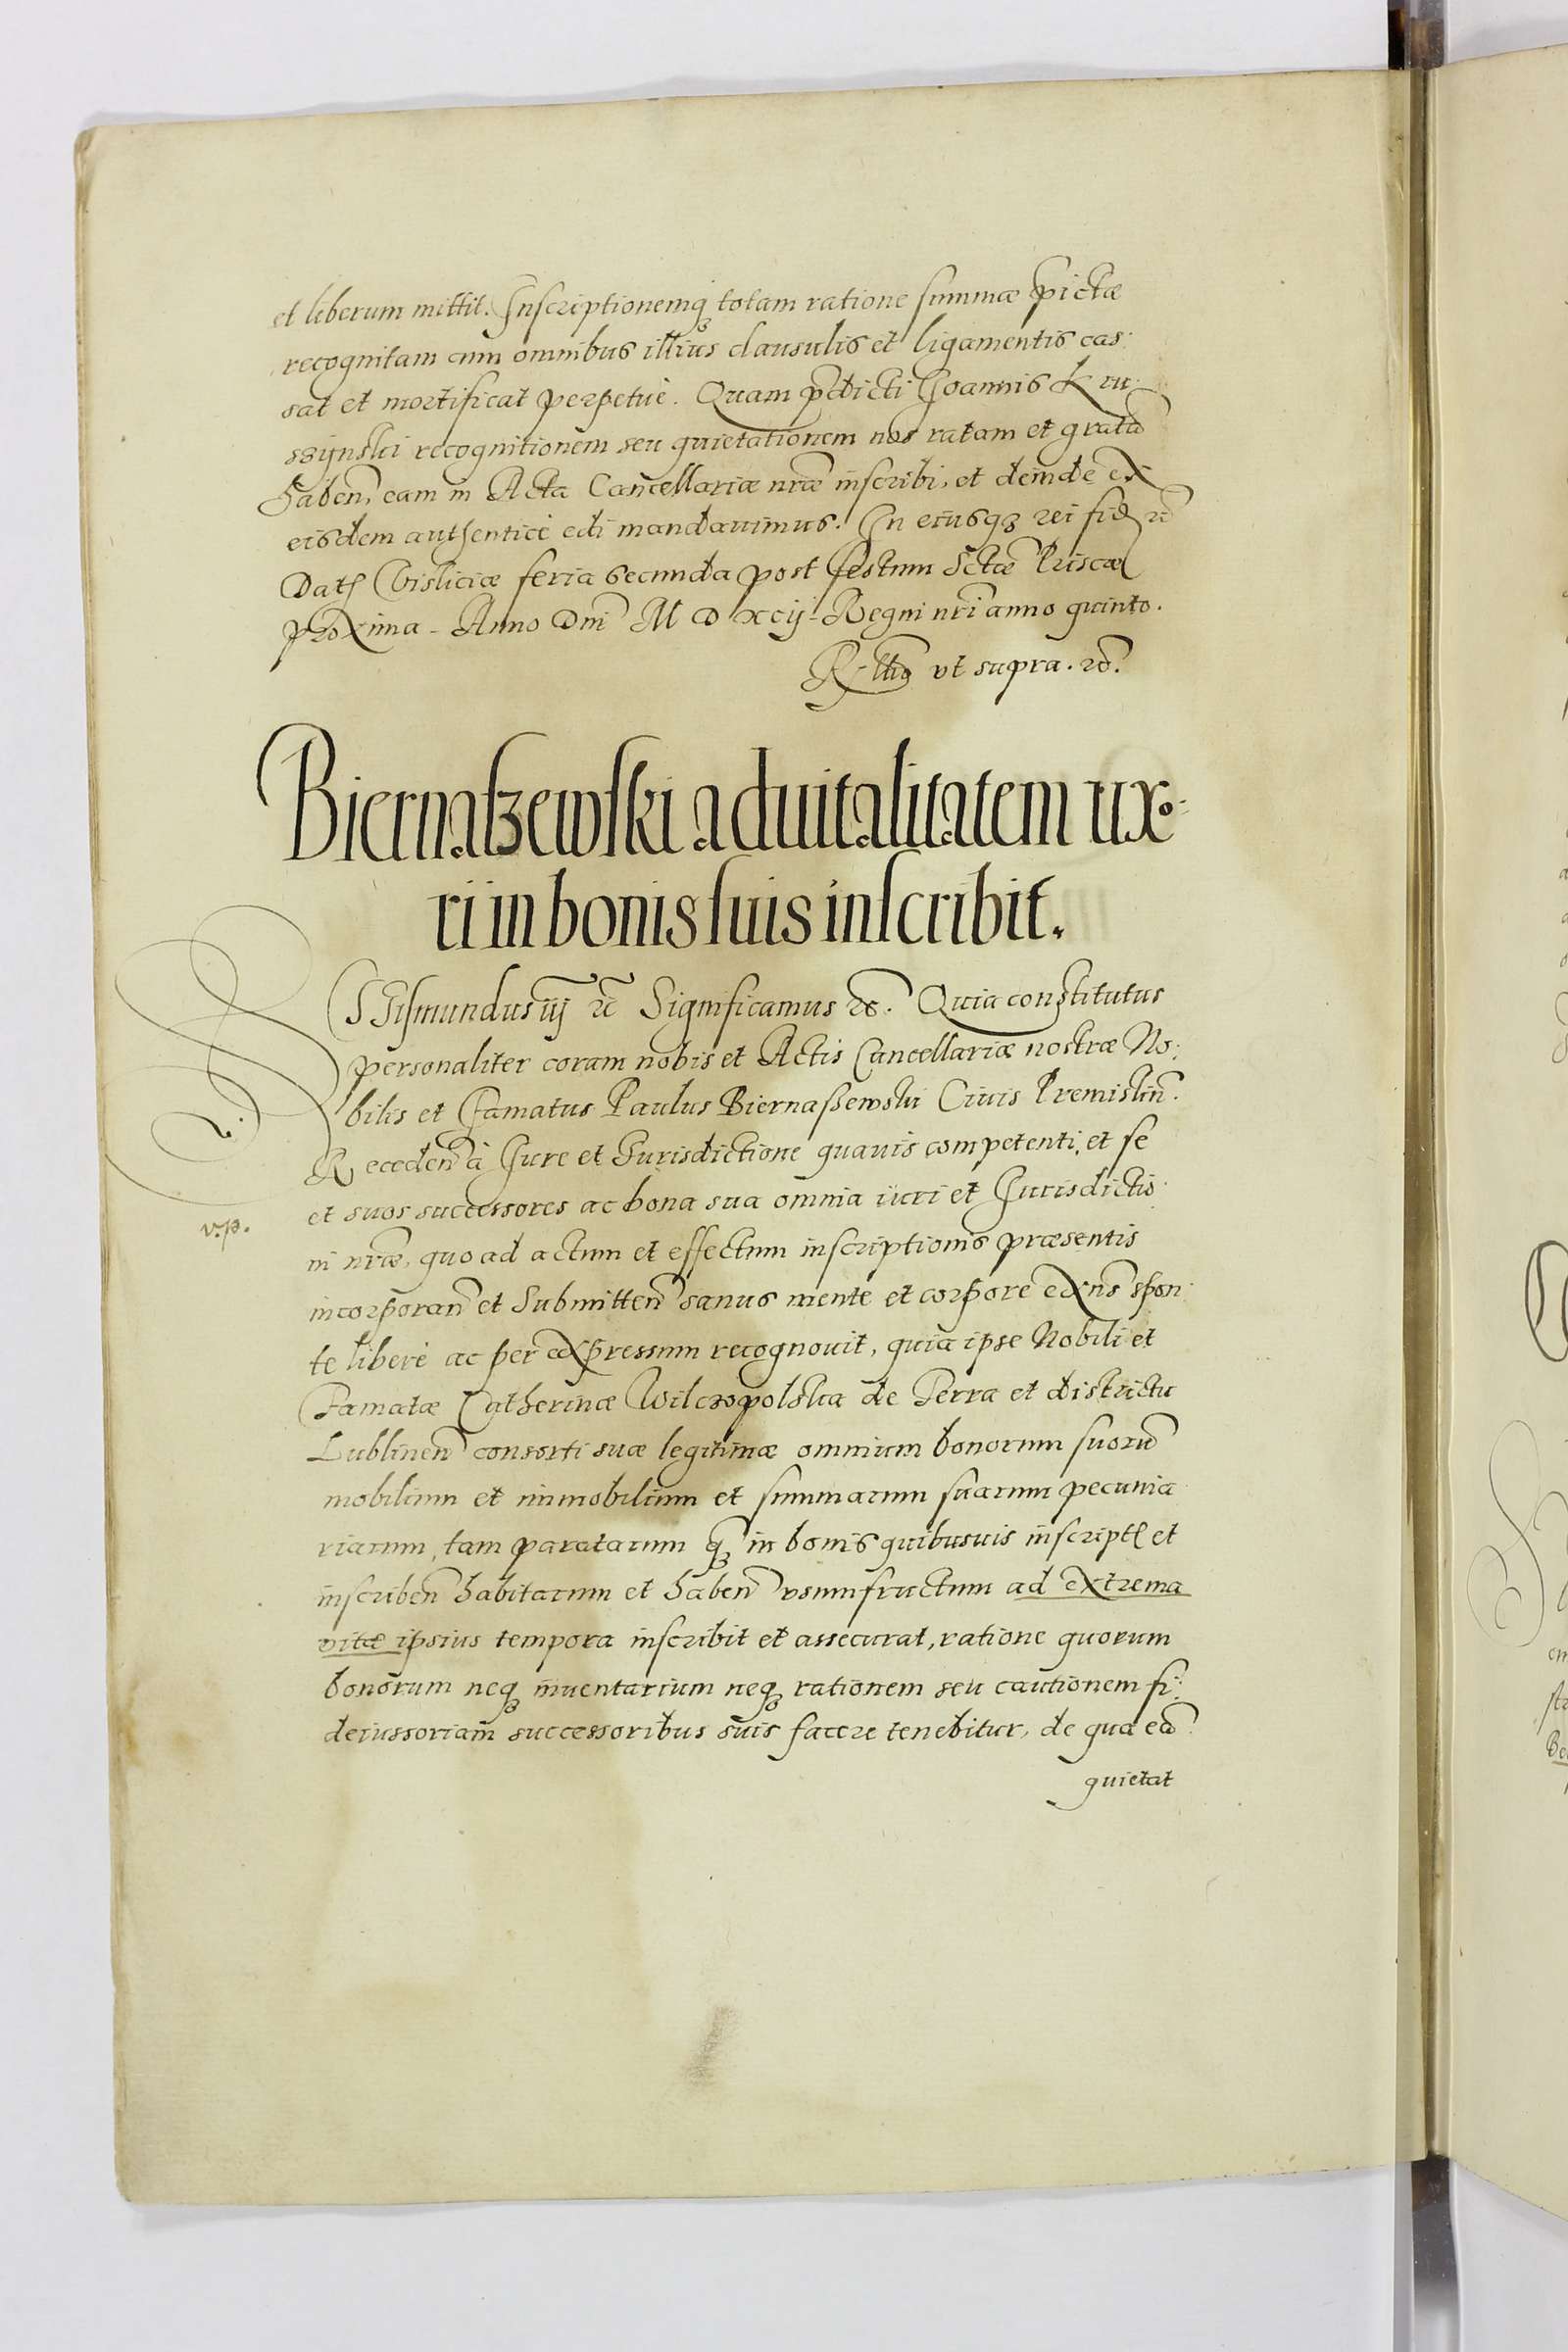 et liberum mittit. Inscriptionemq́ꝫ totam ratione summæ p̃ictæ
recognitam cum omnibus illius clausulis et ligamentis cas:
sat et mortificat perpetuè. Quam p̃dicti Joannis Kru:
ssijnski recognitionem seu quietationem nos ratam et gratã
haben̄, eam in Acta Cancellariæ nr̃æ inscribi, et deinde ex
eisdem authenticè edi mandauimus. In eiusqꝫ rei fid etc̃
Dat Visliciæ feria secunda post festum Sctæ Priscæ
proxima. Anno Dni M D xcij Regni nr̃i anno quinto.
R̃ltio vt supra. etc̃.
Biernaßewski aduitalitatem uxo:
ri in bonis suis inscribit.
SIgismundus iij etc̃ Significamus etc̃. Quia constitutus
personaliter coram nobis et Actis Cancellariæ nostræ No:
bilis et Famatus Paulus Biernaßewski Ciuis Premislin̄.
Receden̄ à Iure et Iurisdictione quauis competenti, et se
et suos successores ac bona sua omnia iuri et Iurisdictio:
v.p.
ni nr̃æ, quo ad actum et effectum inscriptionis præsentis
incorporan̄ et Submitten̄ sanus mente et corpore exn̄s spon:
te liberè ac per expressum recognouit, quia ipse Nobili et
Famatæ Catherinæ Wilczopolska de Terra et districtu
Lublinen̄ consorti suæ legitimæ omnium bonorum suorũ
mobilium et immobilium et summarum suarum pecunia
riarum, tam paratarum q̃ꝫ in bonis quibusuis inscript et
inscriben̄ habitarum et haben̄ vsumfructum ad extrema
vitæ ipsius tempora inscribit et assecurat, ratione quorum
bonorum neqꝫ inuentarium neqꝫ rationem seu cautionem fi:
deiussoriam successoribus suis facere tenebitur, de qua eã
quietat